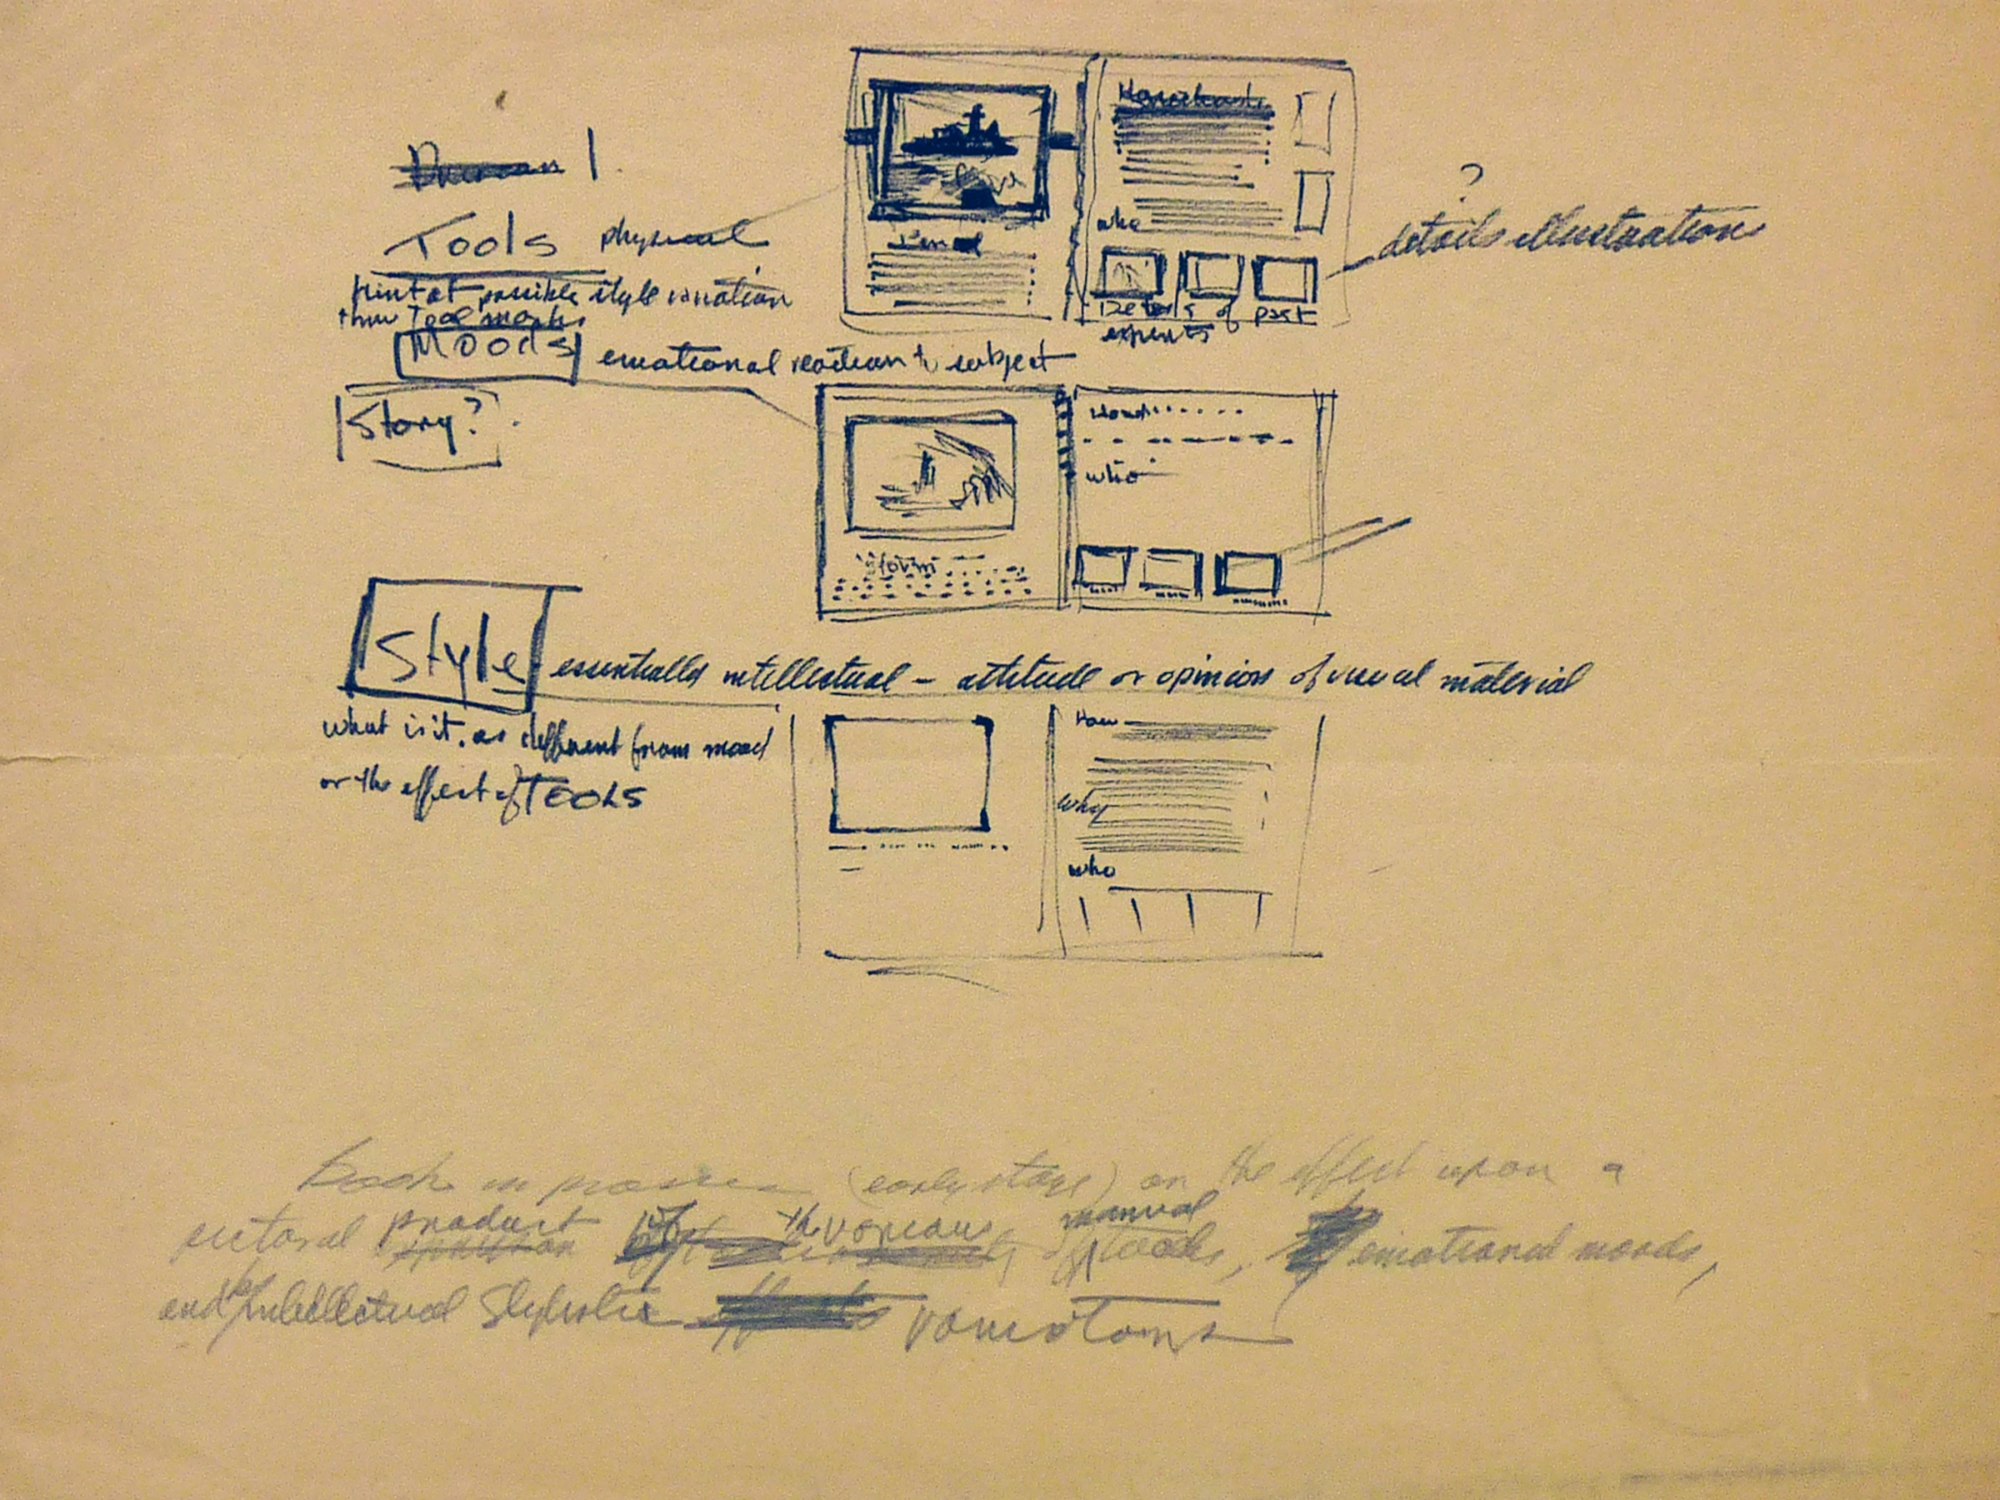 1.
Tools physical
Hint at possible style variation
thru Tool marks
Moods emotional reaction to subject
Story?
Style essentially intellectual - attitude or opinion of visual material
what is it, as different from mood
or the effect of TOOLS
Pencil
who
Details of past
experts
?
details illustration
who
Storm
How
why
who
Book in process (early stage) on the effect upon a
pictorial product of the various manual tools, emotional moods,
and of intellectual stylistic variations